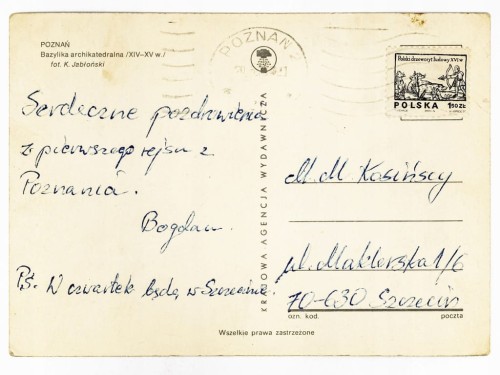 POZNAŃ
Bazylika archikatedralna /XIV–XV w./
fot. K. Jabłoński
Serdeczne pozdrowienia
z pierwszego rejsu z
Poznania.
Bogdan.
PS. W czwartek będę w Szczecinie.
KRAJOWA AGENCJA WYDAWNICZA
POZNAŃ
Polski drzeworyt ludowy XVI w.
POLSKA 1,50 ZŁ
M. M Kasińscy
ul. Maklerska 1/6
70-630 Szczecin
ozn. kod. poczta
Wszelkie prawa zastrzeżone